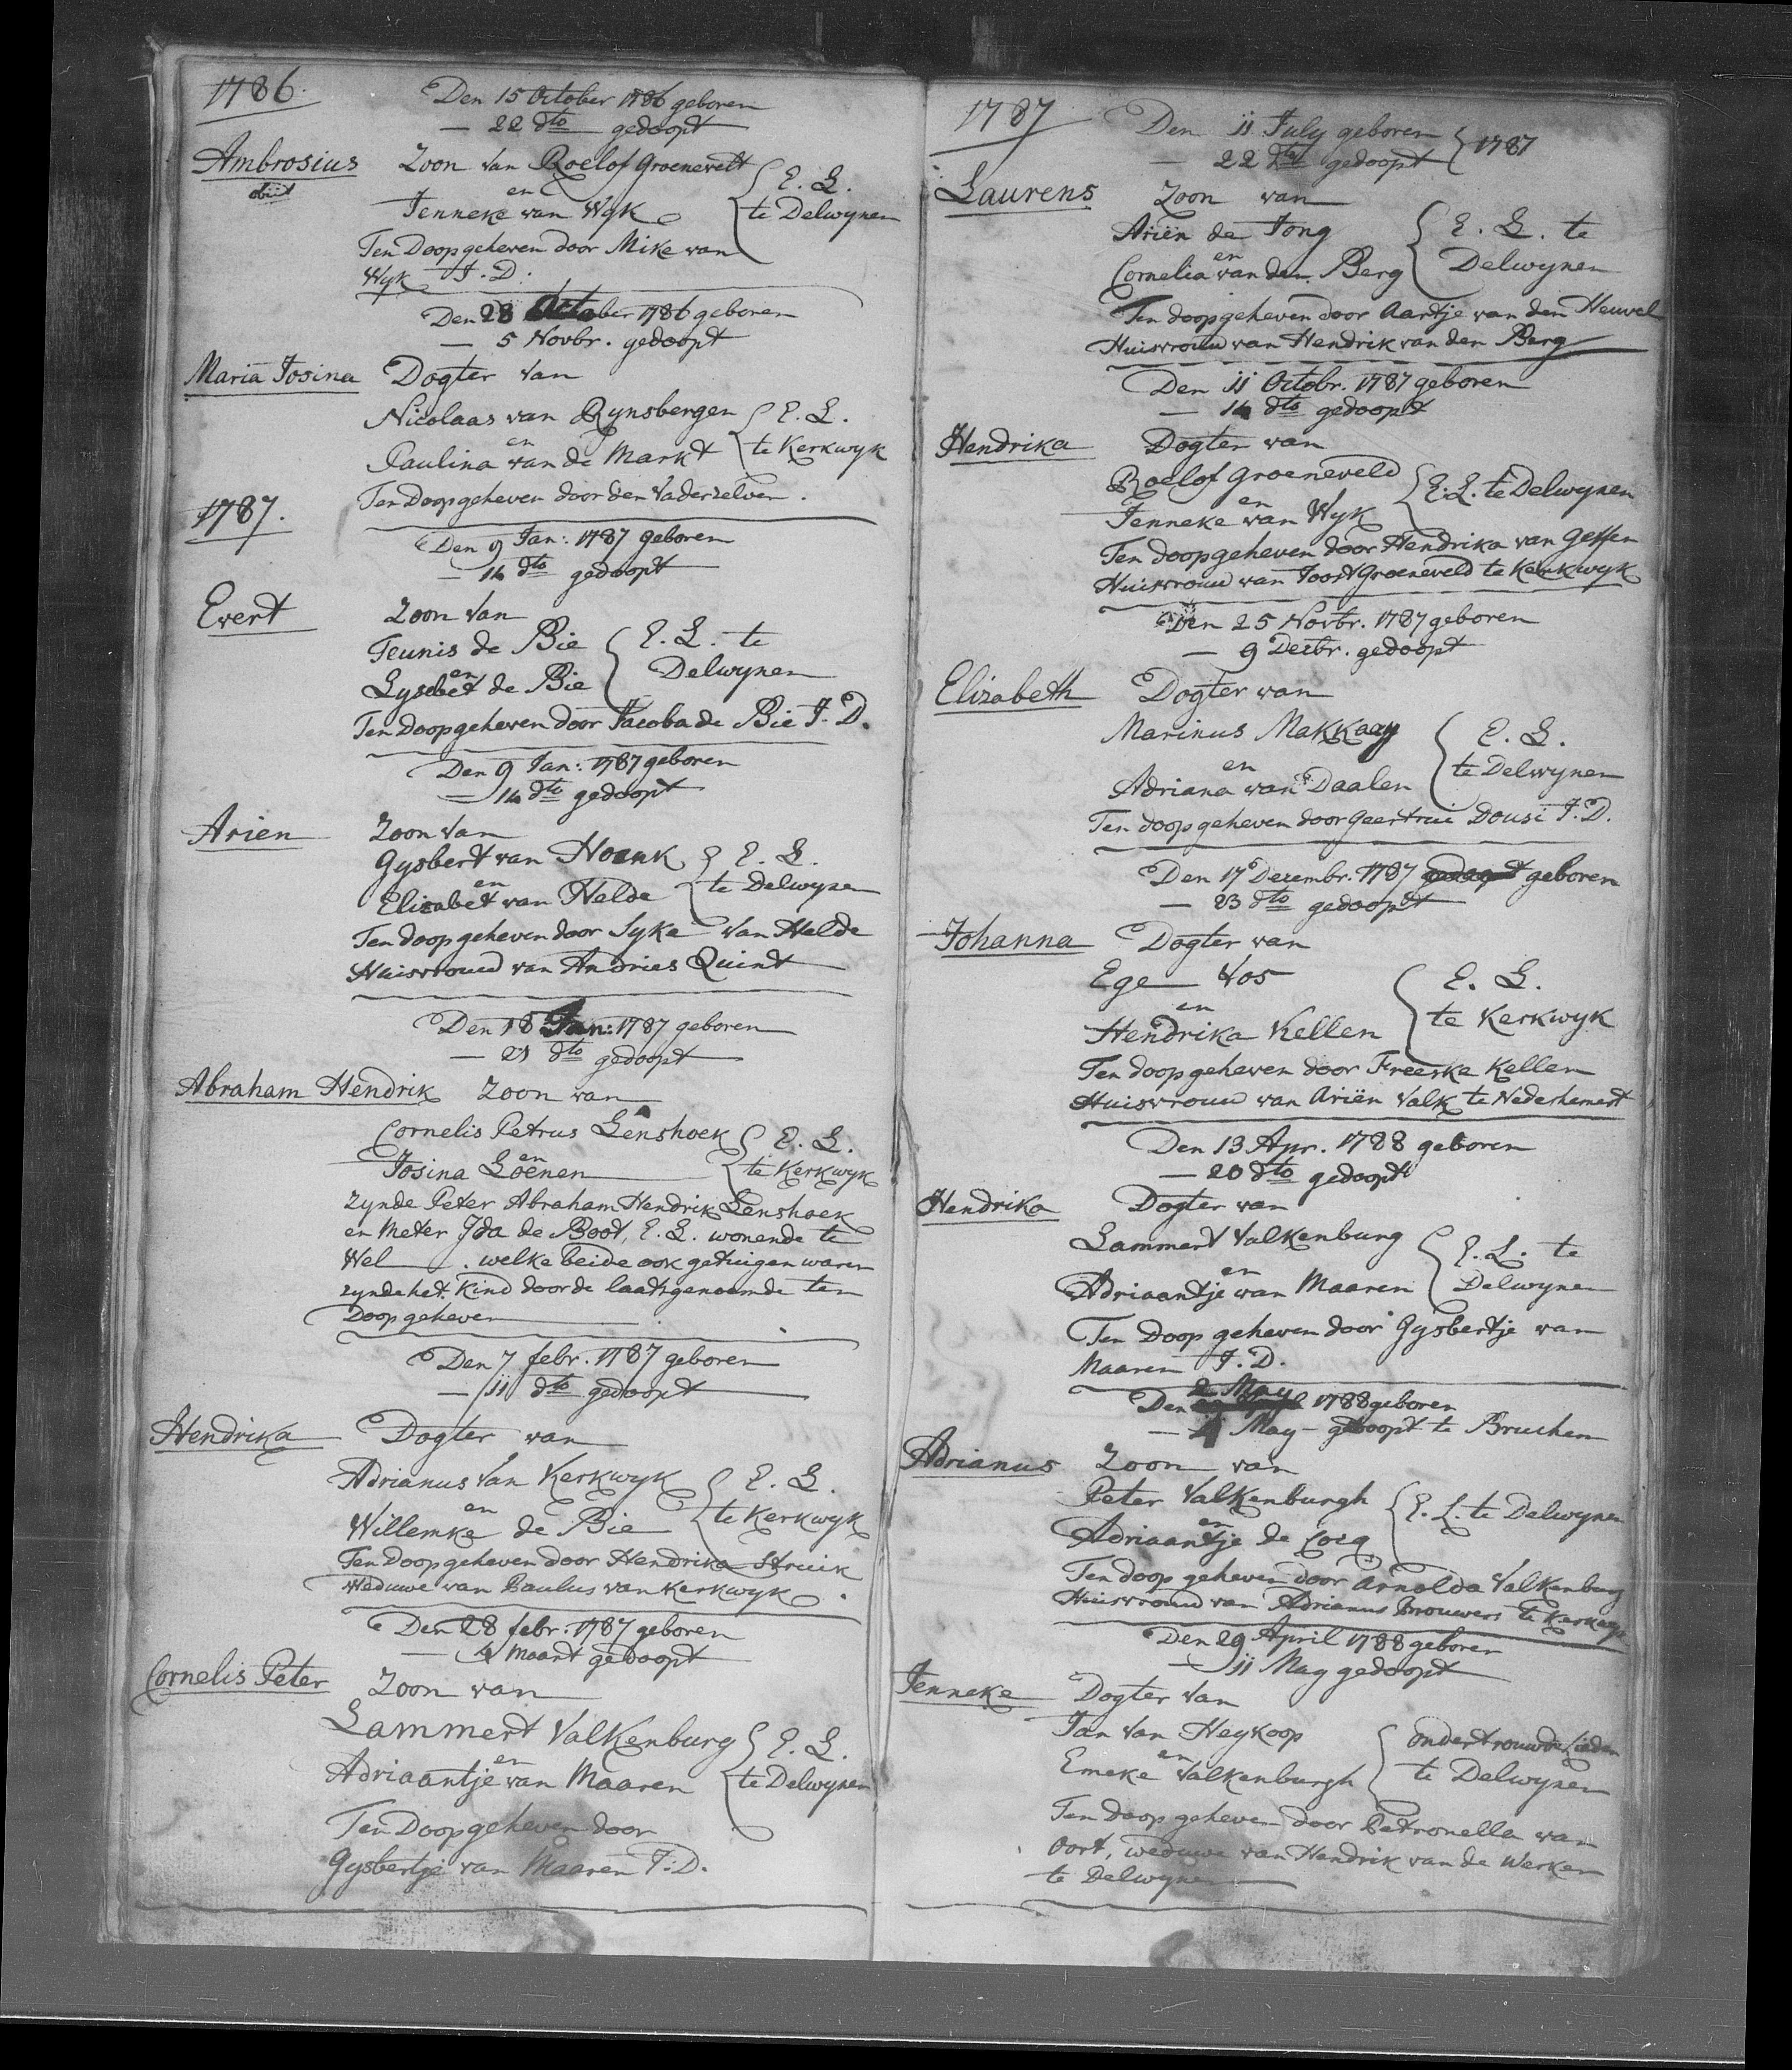 1786.
Den 15 October 1786 geboren
— 22 dto gedoopt
Ambrosius Zoon van Roelof Groenevelt
obiit
en
Jenneke van Wyk
E. L.
te Delwynen
Ten Doop geheven door Mike van
Wyk J. D.
Den 28 October 1786 geboren
— 5 Novbr. gedoopt
Maria Josina Dogter van
Nicolaas van Rynsbergen
en
Paulina van de Markt
E. L.
te Kerkwyk
Ten Doop geheven door den Vader zelven.
1787.
Den 9 Jan: 1787 geboren
— 14 dto gedoopt
Evert Zoon van
Teunis de Bie
en
Lysebet de Bie
E. L. te
Delwynen
Ten Doop geheven door Jacoba de Bie J. D.
Den 9 Jan: 1787 geboren
— 14 dto gedoopt
Arien Zoon van
Gysbert van Hoenk
en
Elizabet van Helde
E. L.
te Delwynen
Ten doop geheven door Syke van Helde
Huisvrouw van Andries Quint
Den 18 Jan: 1787 geboren
— 21 dto gedoopt
Abraham Hendrik Zoon van
Cornelis Petrus Lenshoek
en
Josina Loenen
E. L.
te Kerkwyk
zynde Peter Abraham Hendrik Lenshoek
en Meter Ida de Boot, E. L. wonende te
Wel. welke beide ook getuigen waren
zynde het Kind door de laatsgenoemde ten
Doop geheven
Den 7 febr. 1787 geboren
— 11 dto gedoopt
Hendrika Dogter van
Adrianus van Kerkwyk
en
Willemke de Bie
E. L.
te Kerkwyk
Ten Doop geheven door Hendrika Struik
Weduwe van Paulus van Kerkwyk.
Den 28 febr. 1787 geboren
— 4 Maart gedoopt
Cornelis Peter Zoon van
Lammert Valkenburg
en
Adriaantje van Maaren
E. L.
te Delwynen
Ten Doop geheven door
Gysbertje van Maaren J. D.
1787
Den 11 July geboren
— 22 dto gedoopt
1787
Laurens Zoon van
Ariën de Jong
en
Cornelia van den Berg
E. L. te
Delwynen
Ten doop geheven door Aartje van den Heuvel
Huisvrouw van Hendrik van den Berg
Den 11 Octobr. 1787 geboren
— 14 dto gedoopt
Hendrika Dogter van
Roelof Groeneveld
en
Jenneke van Wyk
E. L. te Delwynen
Ten doop geheven door Hendrika van Gessen
Huisvrouw van Joost Groeneveld te Kerkwyk
Den 25 Novbr. 1787 geboren
— 9 Decbr. gedoopt
Elizabeth Dogter van
Marinus Makkaay
en
Adriana van Daalen
E. L.
te Delwynen
Ten doop geheven door Geertrui Dousi J. D.
Den 17 Dezembr. 1787 gedoopt geboren
— 23 dto gedoopt
Johanna Dogter van
Ege Vos
en
Hendrika Kellen
E. L.
te Kerkwyk
Ten doop geheven door Freeske Kellen
Huisvrouw van Ariën Valk te Nederhemert
Den 13 Apr. 1788 geboren
— 20 dto gedoopt
Hendrika Dogter van
Lammert Valkenburg
en
Adriaantje van Maaren
E. L. te
Delwynen
Ten Doop geheven door Gysbertje van
Maaren J. D.
2 May
Den 1788 geboren
— 4 May — gedoopt te Bruchem
Adrianus Zoon van
Peter Valkenburgh
en
Adriaantje de Cocq
E. L. te Delwynen
Ten doop geheven door Arnolda Valkenburg
Huisvrouw van Adrianus Brouwers te Kerkwyk
Den 29 April 1788 geboren
— 11 May gedoopt
Jenneke Dogter van
Jan van Heykoop
en
Emeke Valkenburgh
ondertrouwde Lieden
te Delwynen
Ten doop geheven door Petronella van
Oort, weduwe van Hendrik van de Werken
te Delwynen